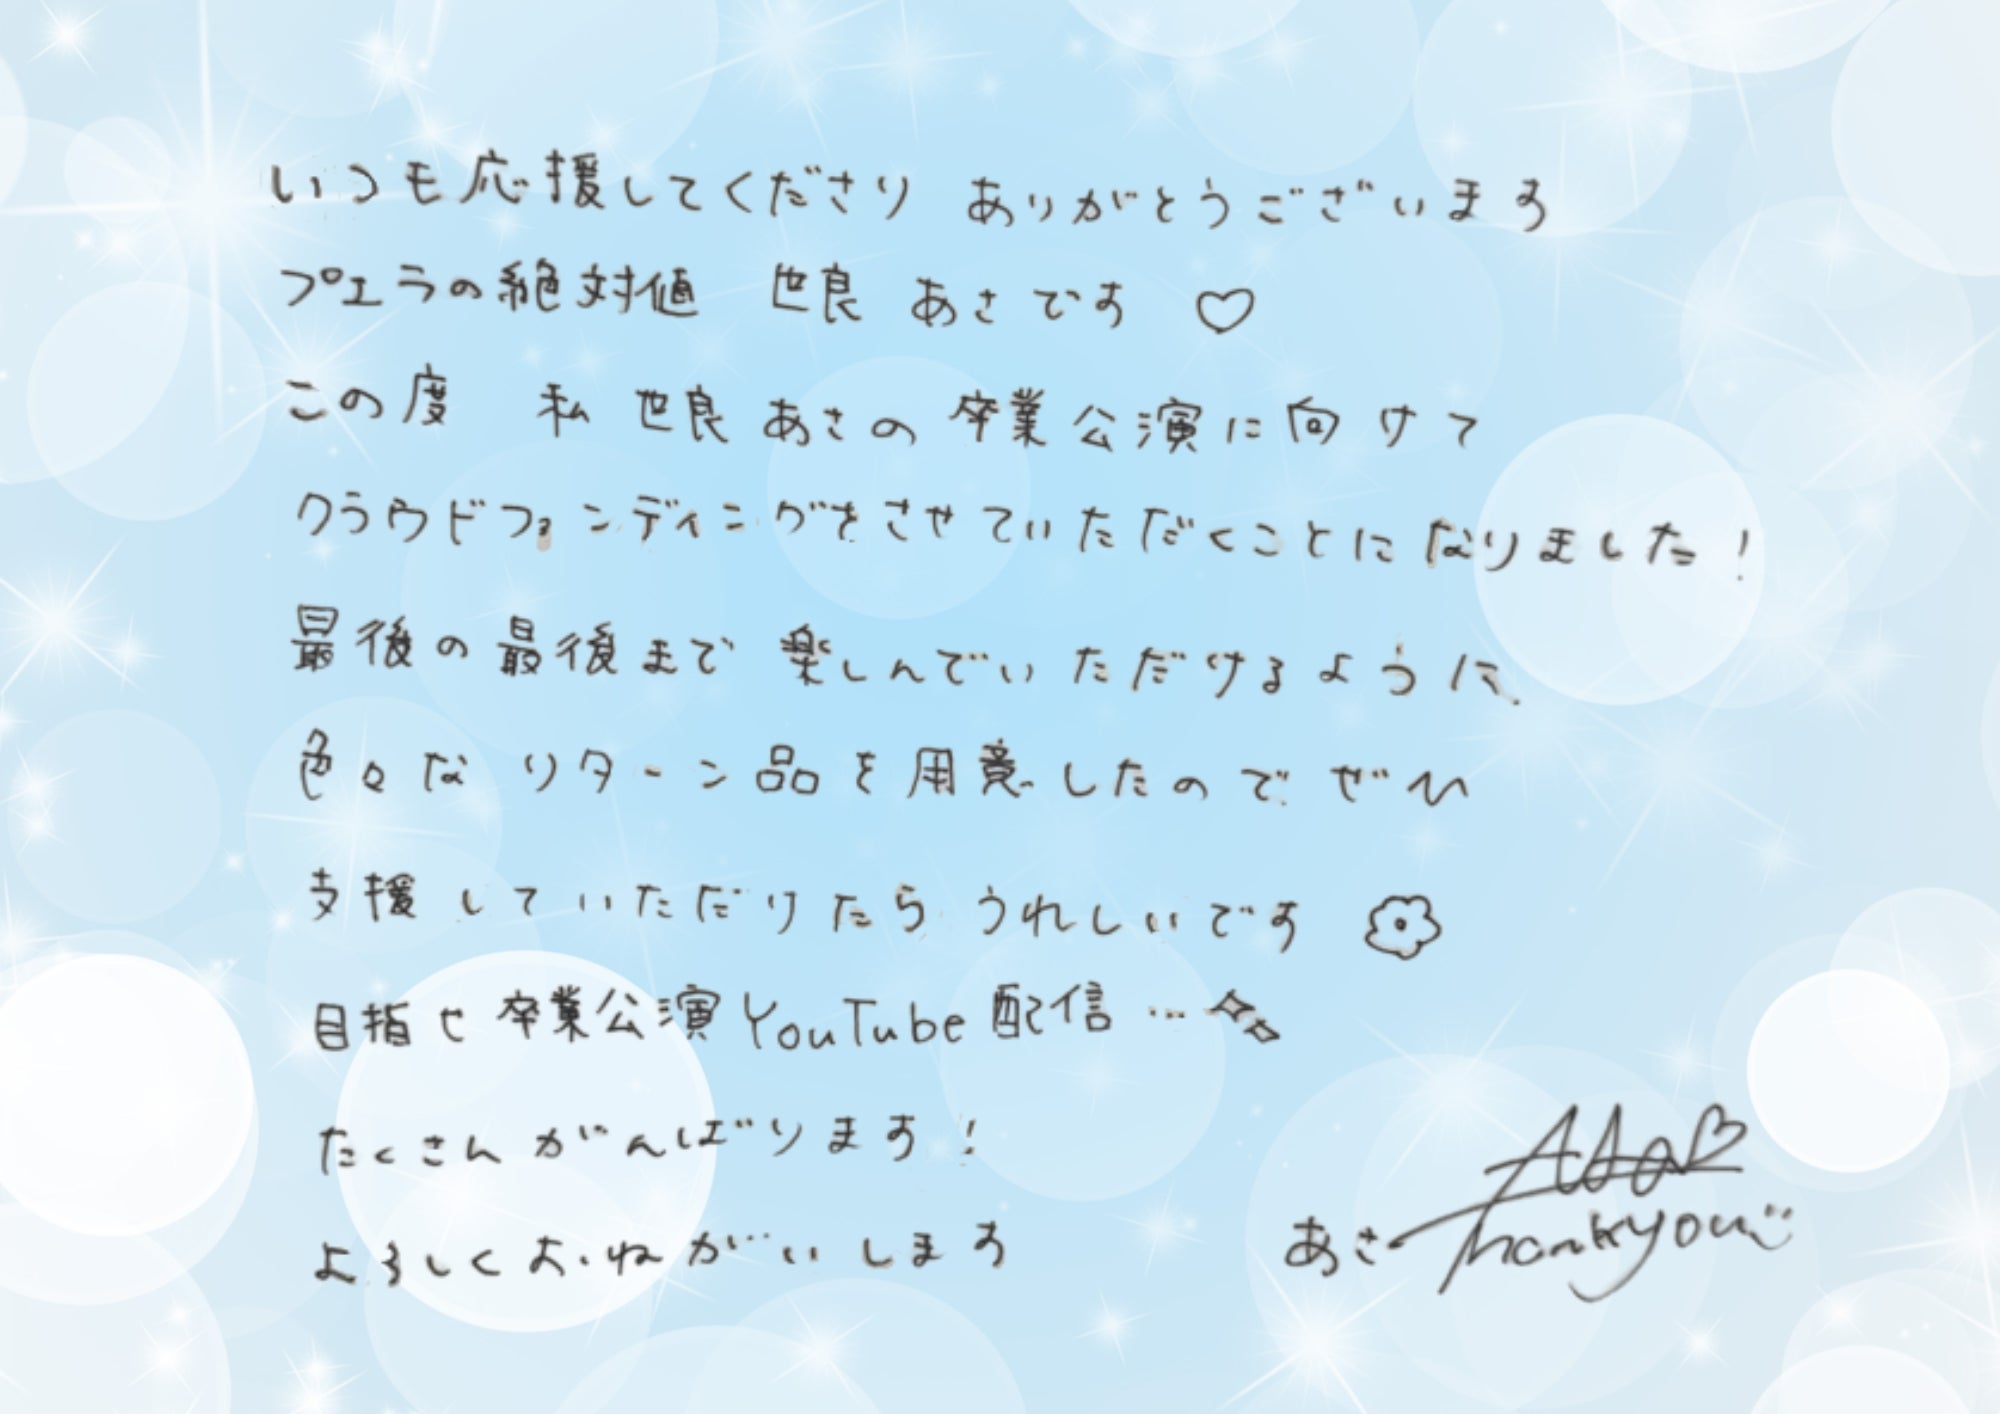 いつも応援してくださり ありがとうございます
プエラの絶対値 世良 あさです ♡
この度 私 世良 あさの 卒業公演に向けて
クラウドファンディングをさせていただくことになりました!
最後の最後まで 楽しんでいただけるように
色々な リターン品を用意したので ぜひ
支援していただけたら うれしいです
目指せ 卒業公演 YouTube 配信…
たくさん がんばります!
よろしくおねがいします
ASA♡
あさ Thank you